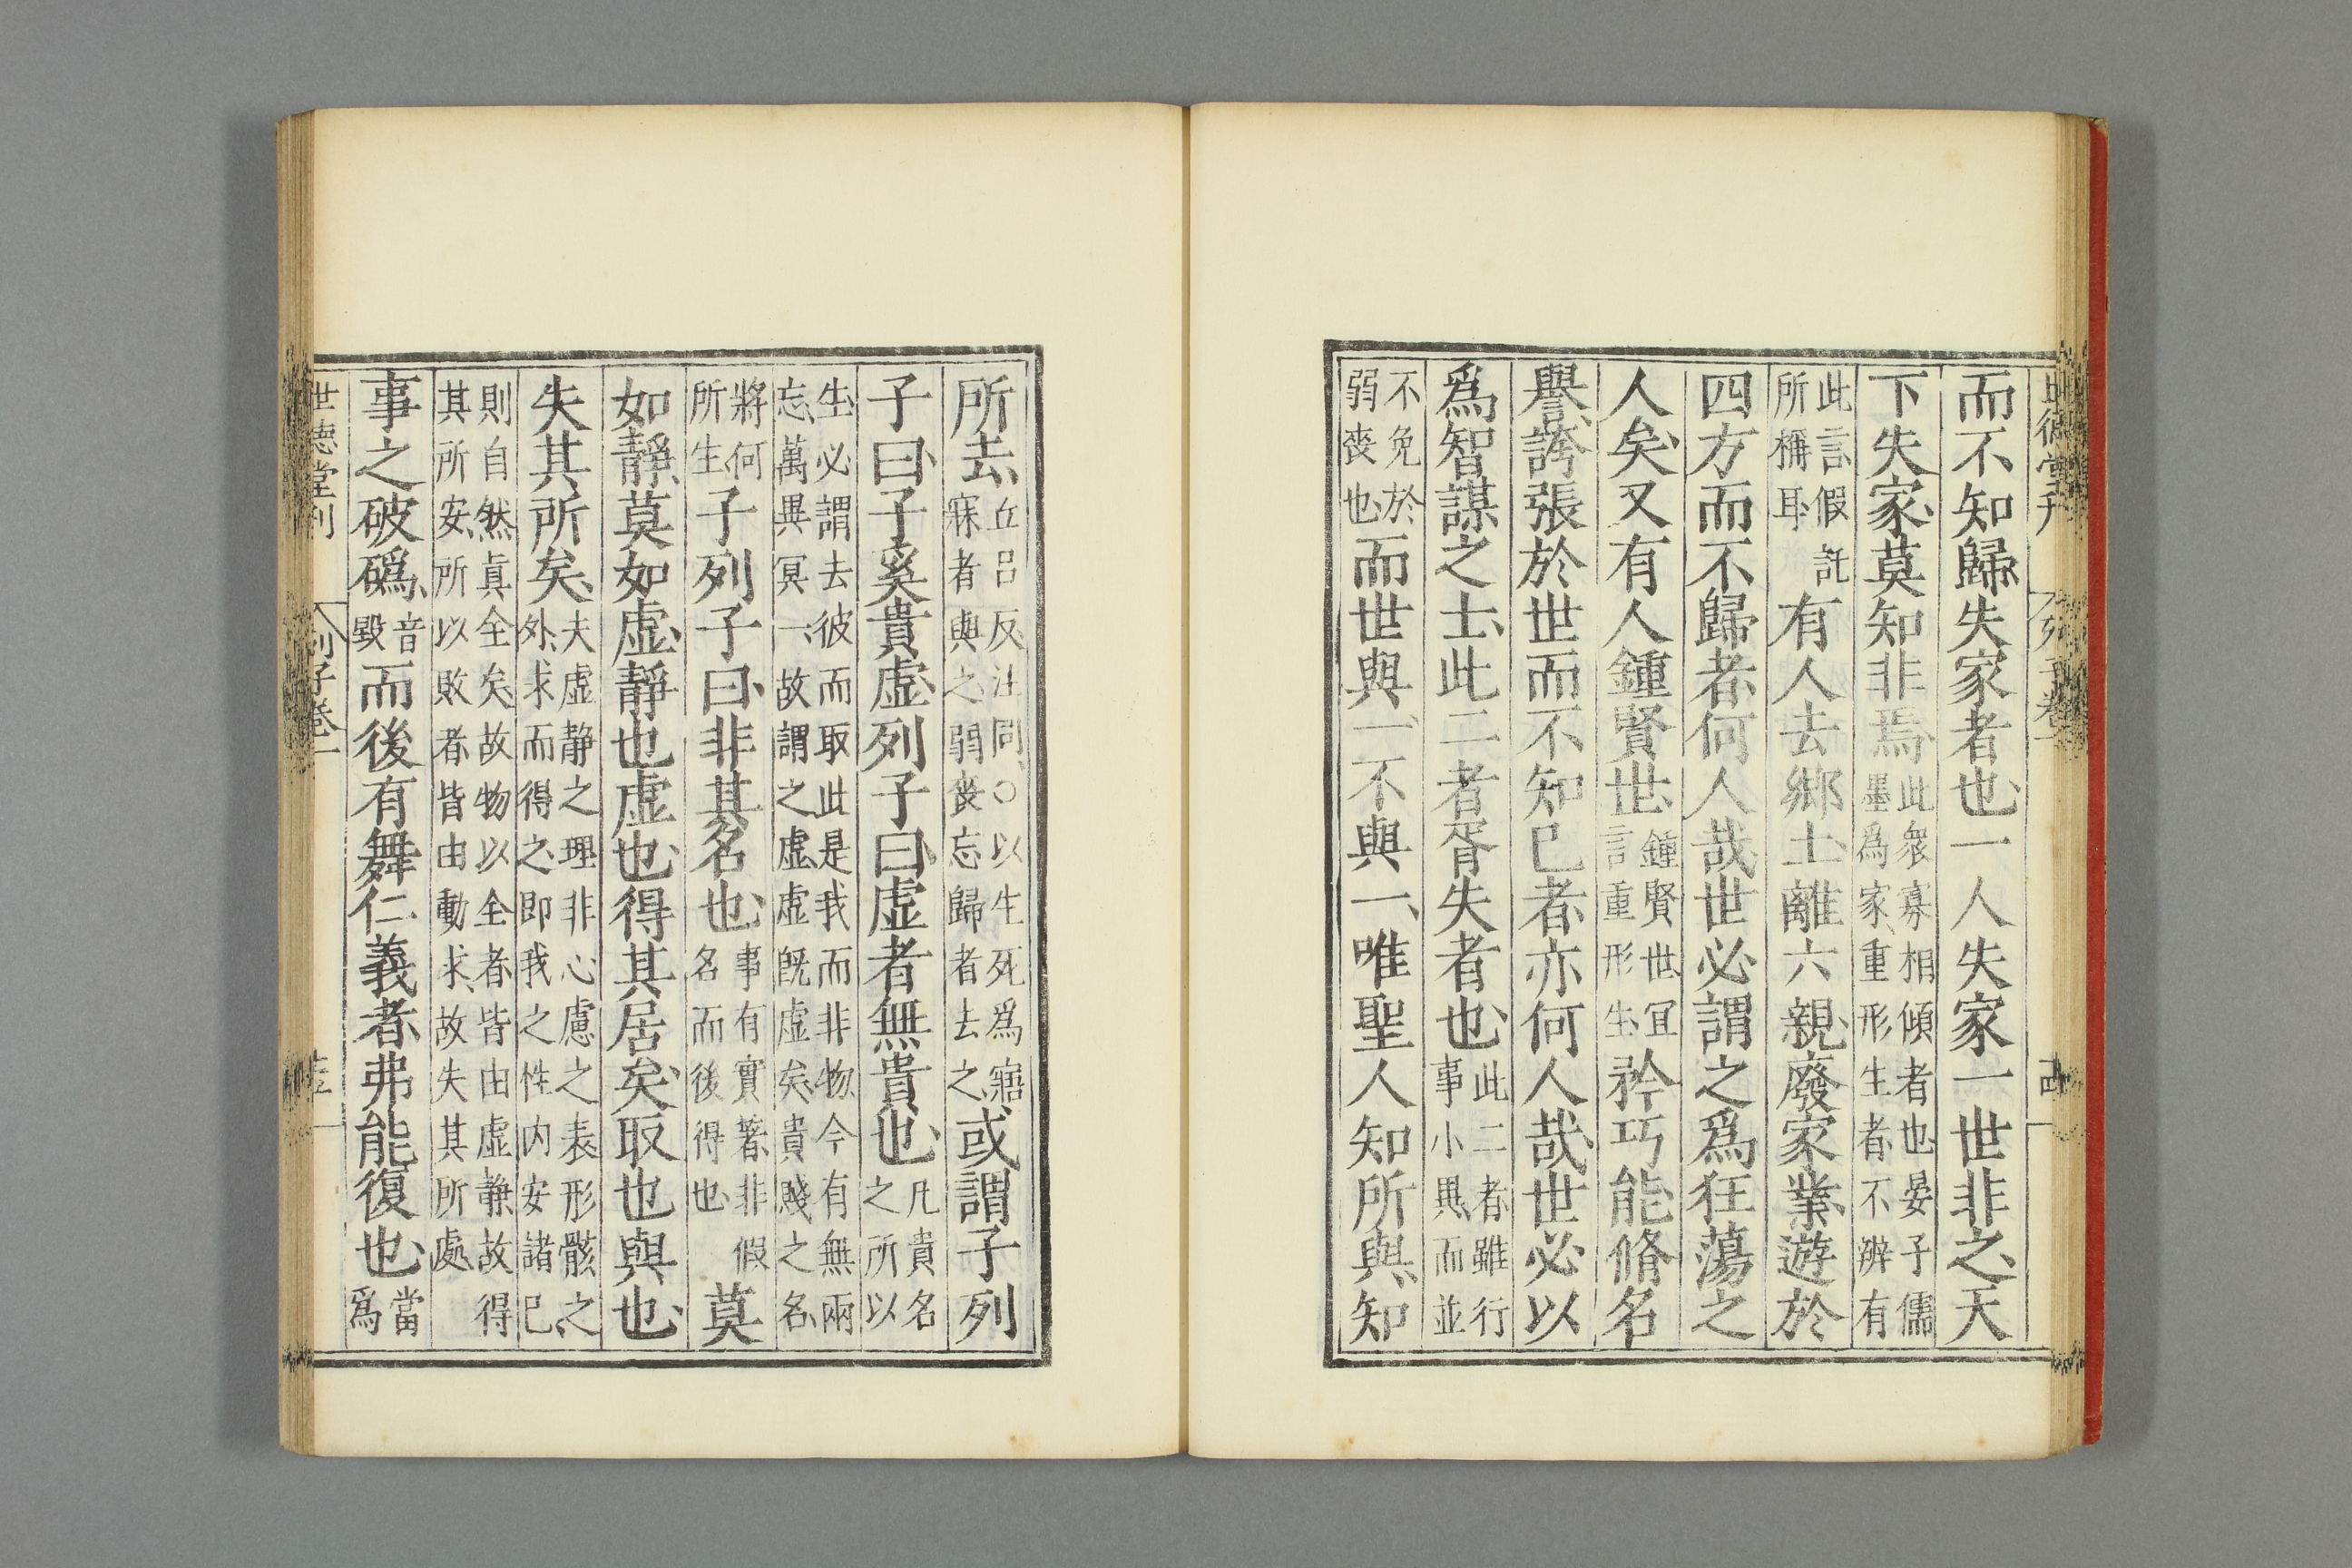 而不知歸失家者也一人失家一世非之天
下失家莫知非焉此衆寡相傾者也晏子儒墨爲家重形生者不辨有
此言假託所稱耳有人去鄉土離六親廢家業遊於
四方而不歸者何人哉世必謂之爲狂蕩之
人矣又有人鍾賢世鍾賢世冝言重形生矜巧能脩名
譽誇張於世而不知已者亦何人哉世必以
爲智謀之士此二者胥失者也此二者雖行事小異而並
不免於弱喪也而世與一不與一唯聖人知所與知
所去丘呂反注同○以生死爲寤寐者與之弱喪忘歸者去之或謂子列
子曰子奚貴虛列子曰虛者無貴也凡貴名之所以
生必謂去彼而取此是我而非物今有無兩忘萬異冥一故謂之虛虛旣虛矣貴賤之名
將何所生子列子曰非其名也事有實著非假名而後得也莫
如靜莫如虛虛靜也虛也得其居矣取也與也
失其所矣夫虛靜之理非心慮之表形骸之外求而得之即我之性内安諸已
則自然眞全矣故物以全者皆由虛靜故得其所安所以敗者皆由動求故失其所處
事之破䃣音毀而後有舞仁義者弗能復也當爲
世德堂刊
列子卷一